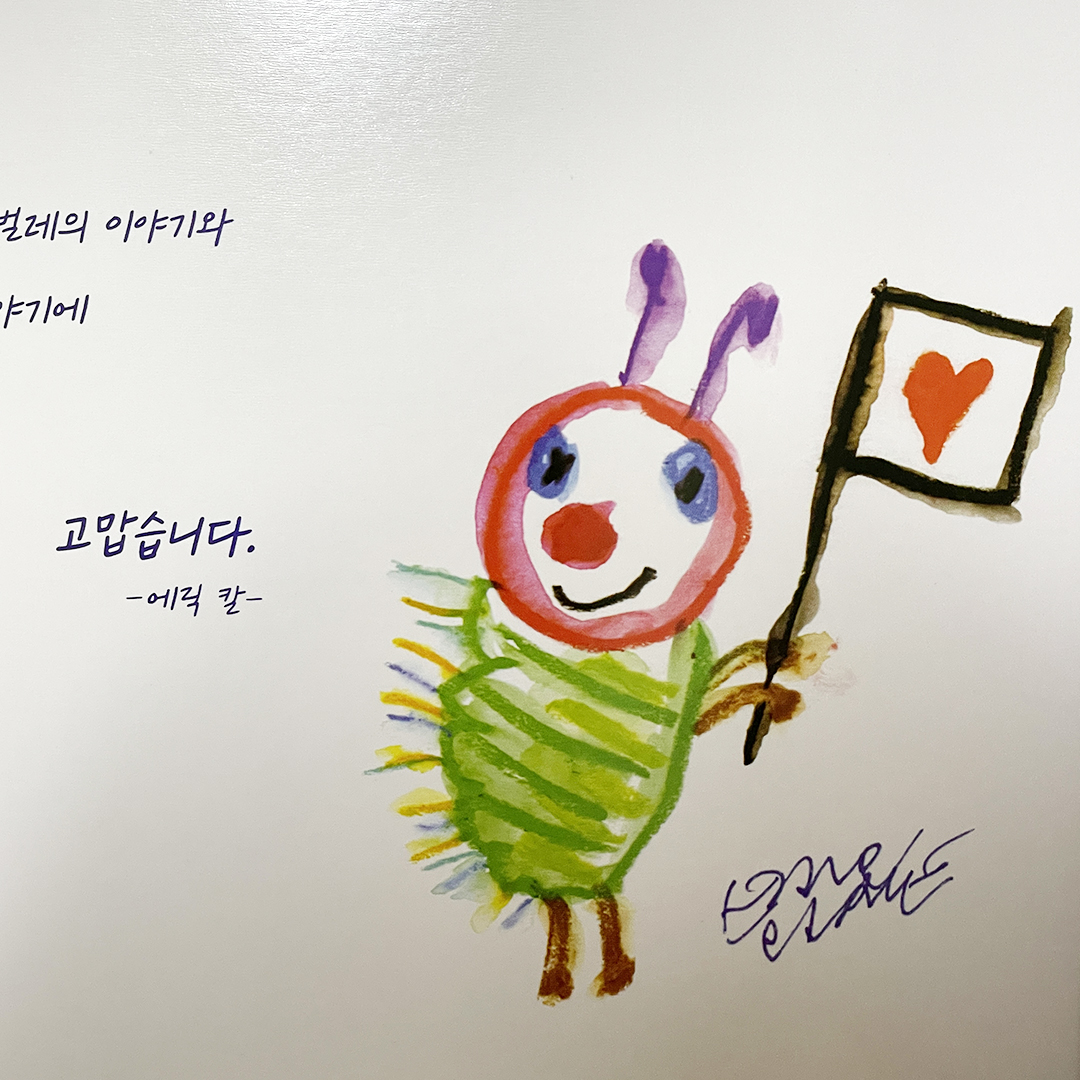 벌레의 이야기와
야기에
고맙습니다.
-에릭 칼-